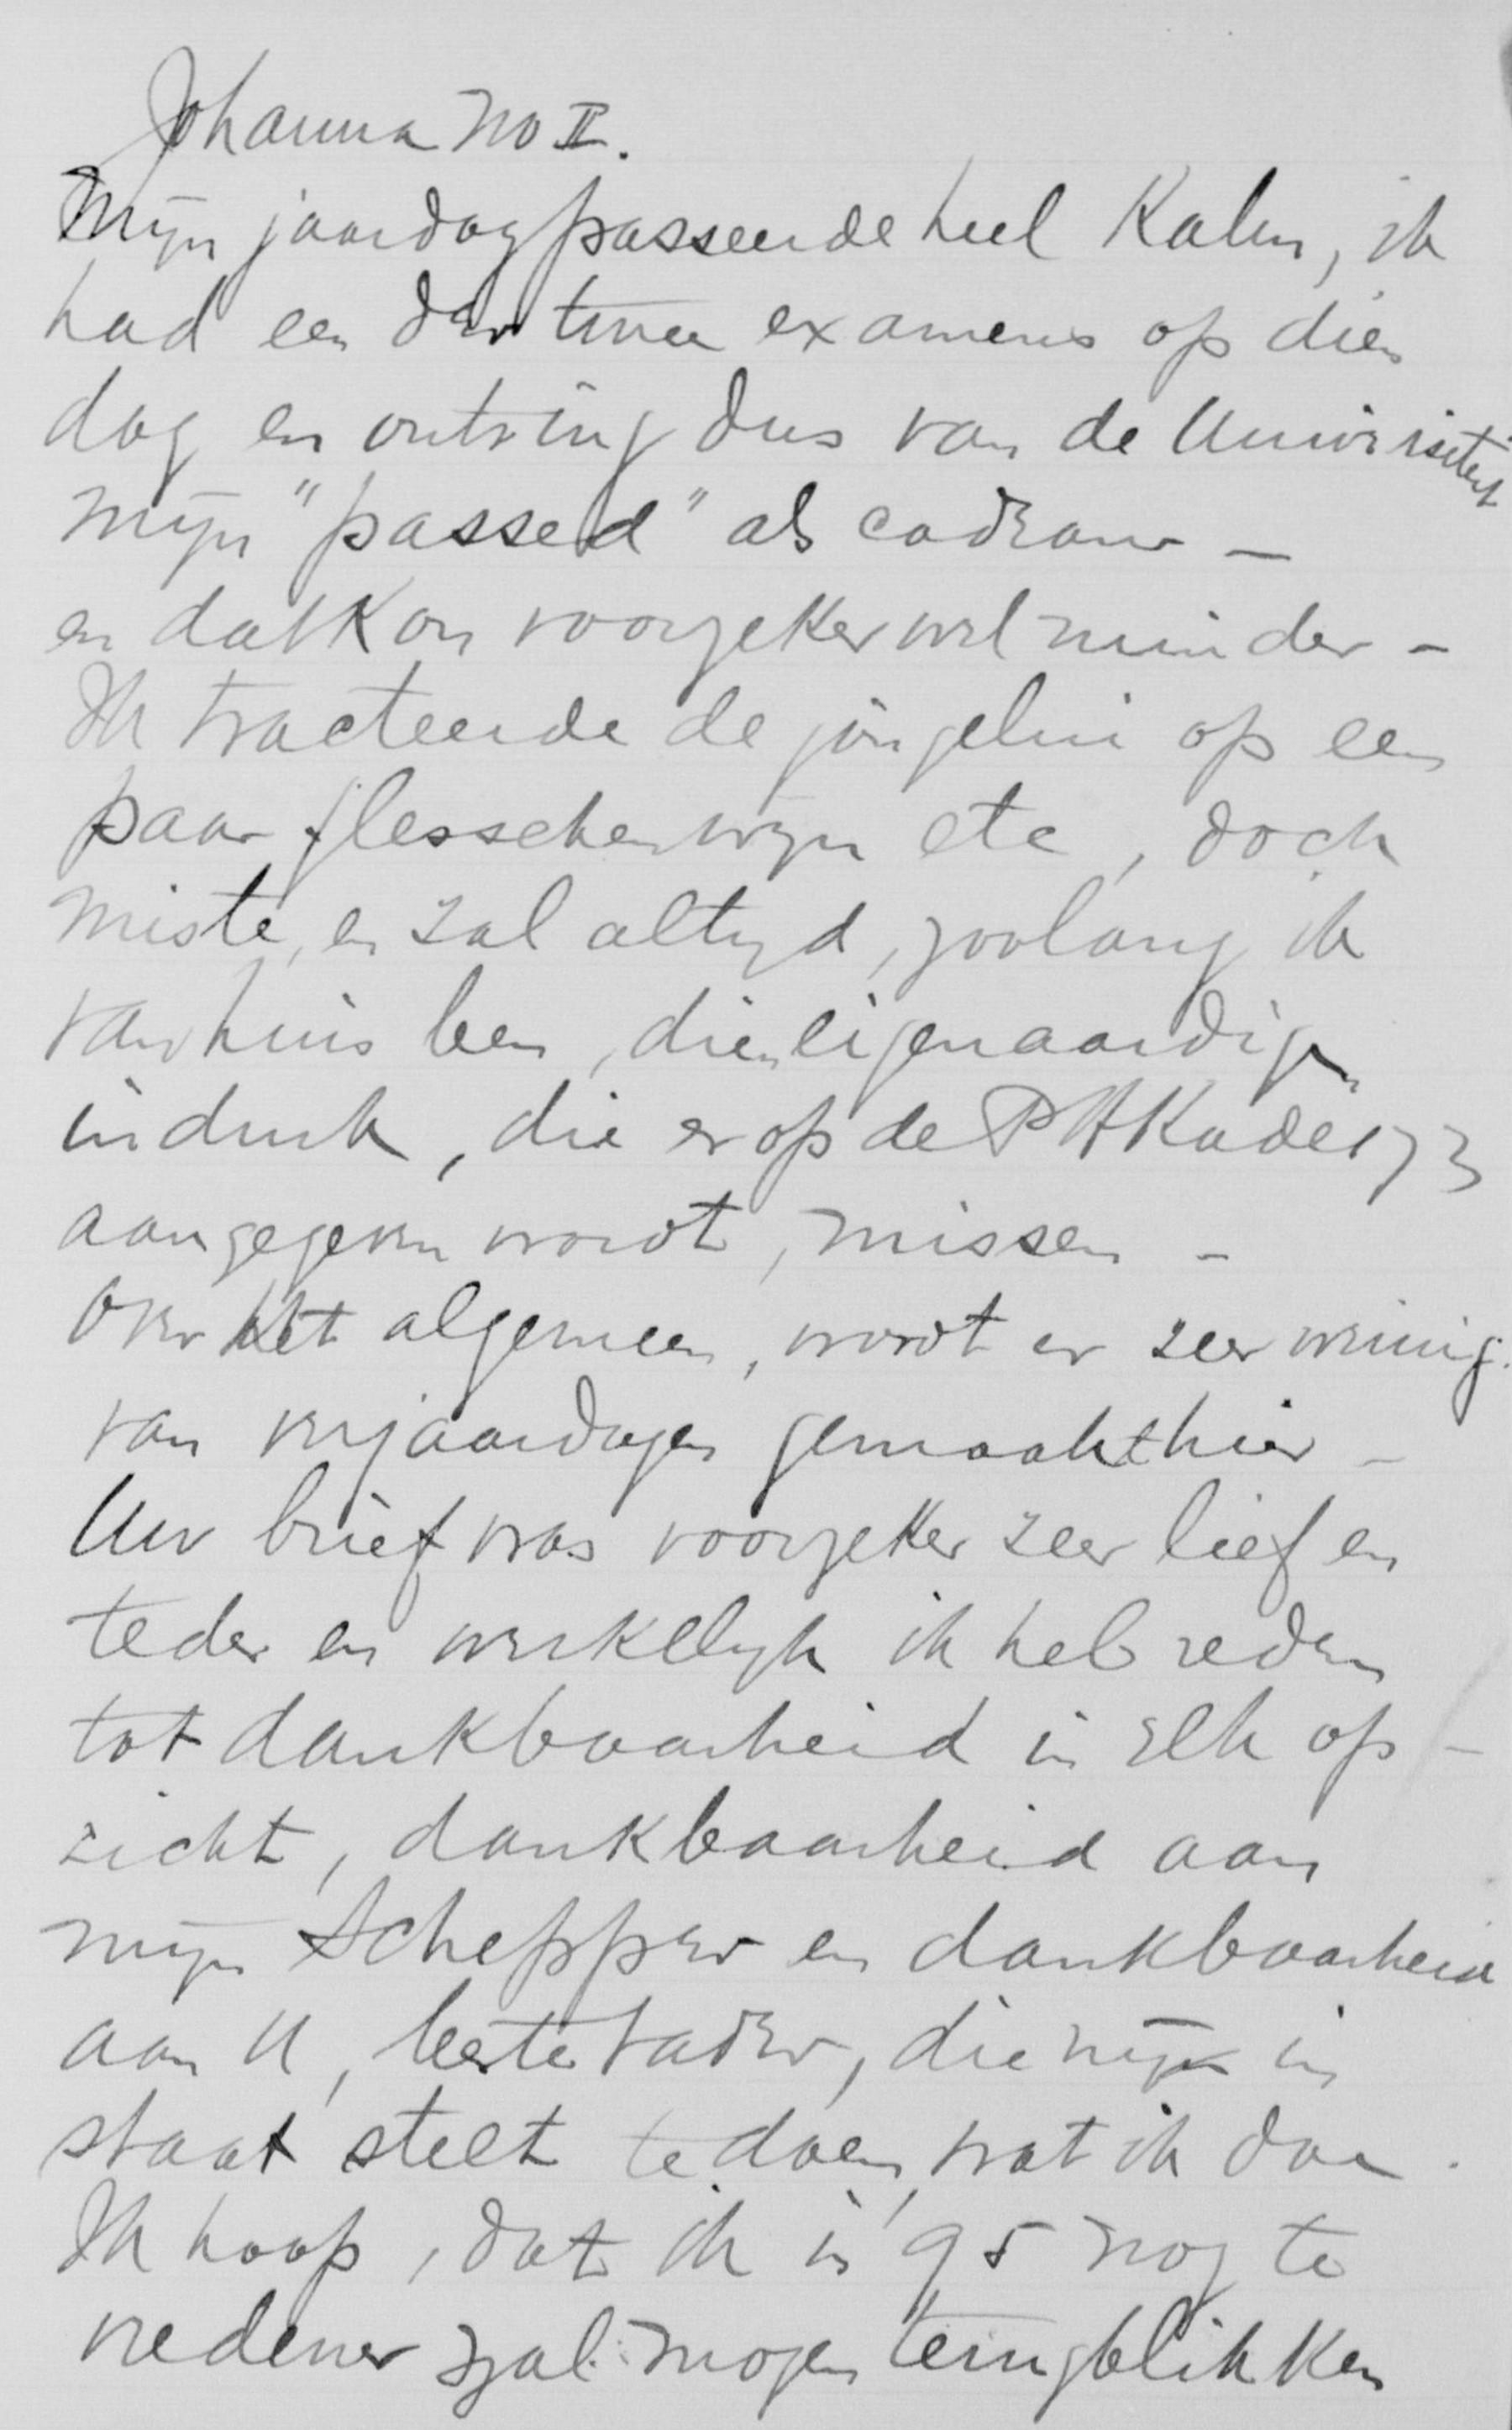 Johanna no II.
Mijn jaardag passeerde heel Kalm, ik
had een dar twee examens op dien
dag en ontving dus van de Universiteit
mijn "passed" als cadeau –
en dat Kon voorzeker wel minder –
Ik tracteerde de jongelui op een
paar flesschen wijn etc, doch
miste, en zal altijd, zoolang ik
van huis ben, dien eigenaardigen
indruk, die er op de PHKade 173
aangegeven wordt, missen –
Over het algemeen, wordt er zeer weinig
van verjaardagen gemaakt hier –
Uw brief was voorzeker zeer lief en
teder en werkelijk ik heb reden
tot dankbaarheid in elk op –
zicht, dankbaarheid aan
mijn Schepper en dankbaarheid
aan U, beste Vader, die mij in
staat stelt te doen, wat ik doe.
Ik hoop, dat ik in '95 nog te
vredener zal mogen terugblikken